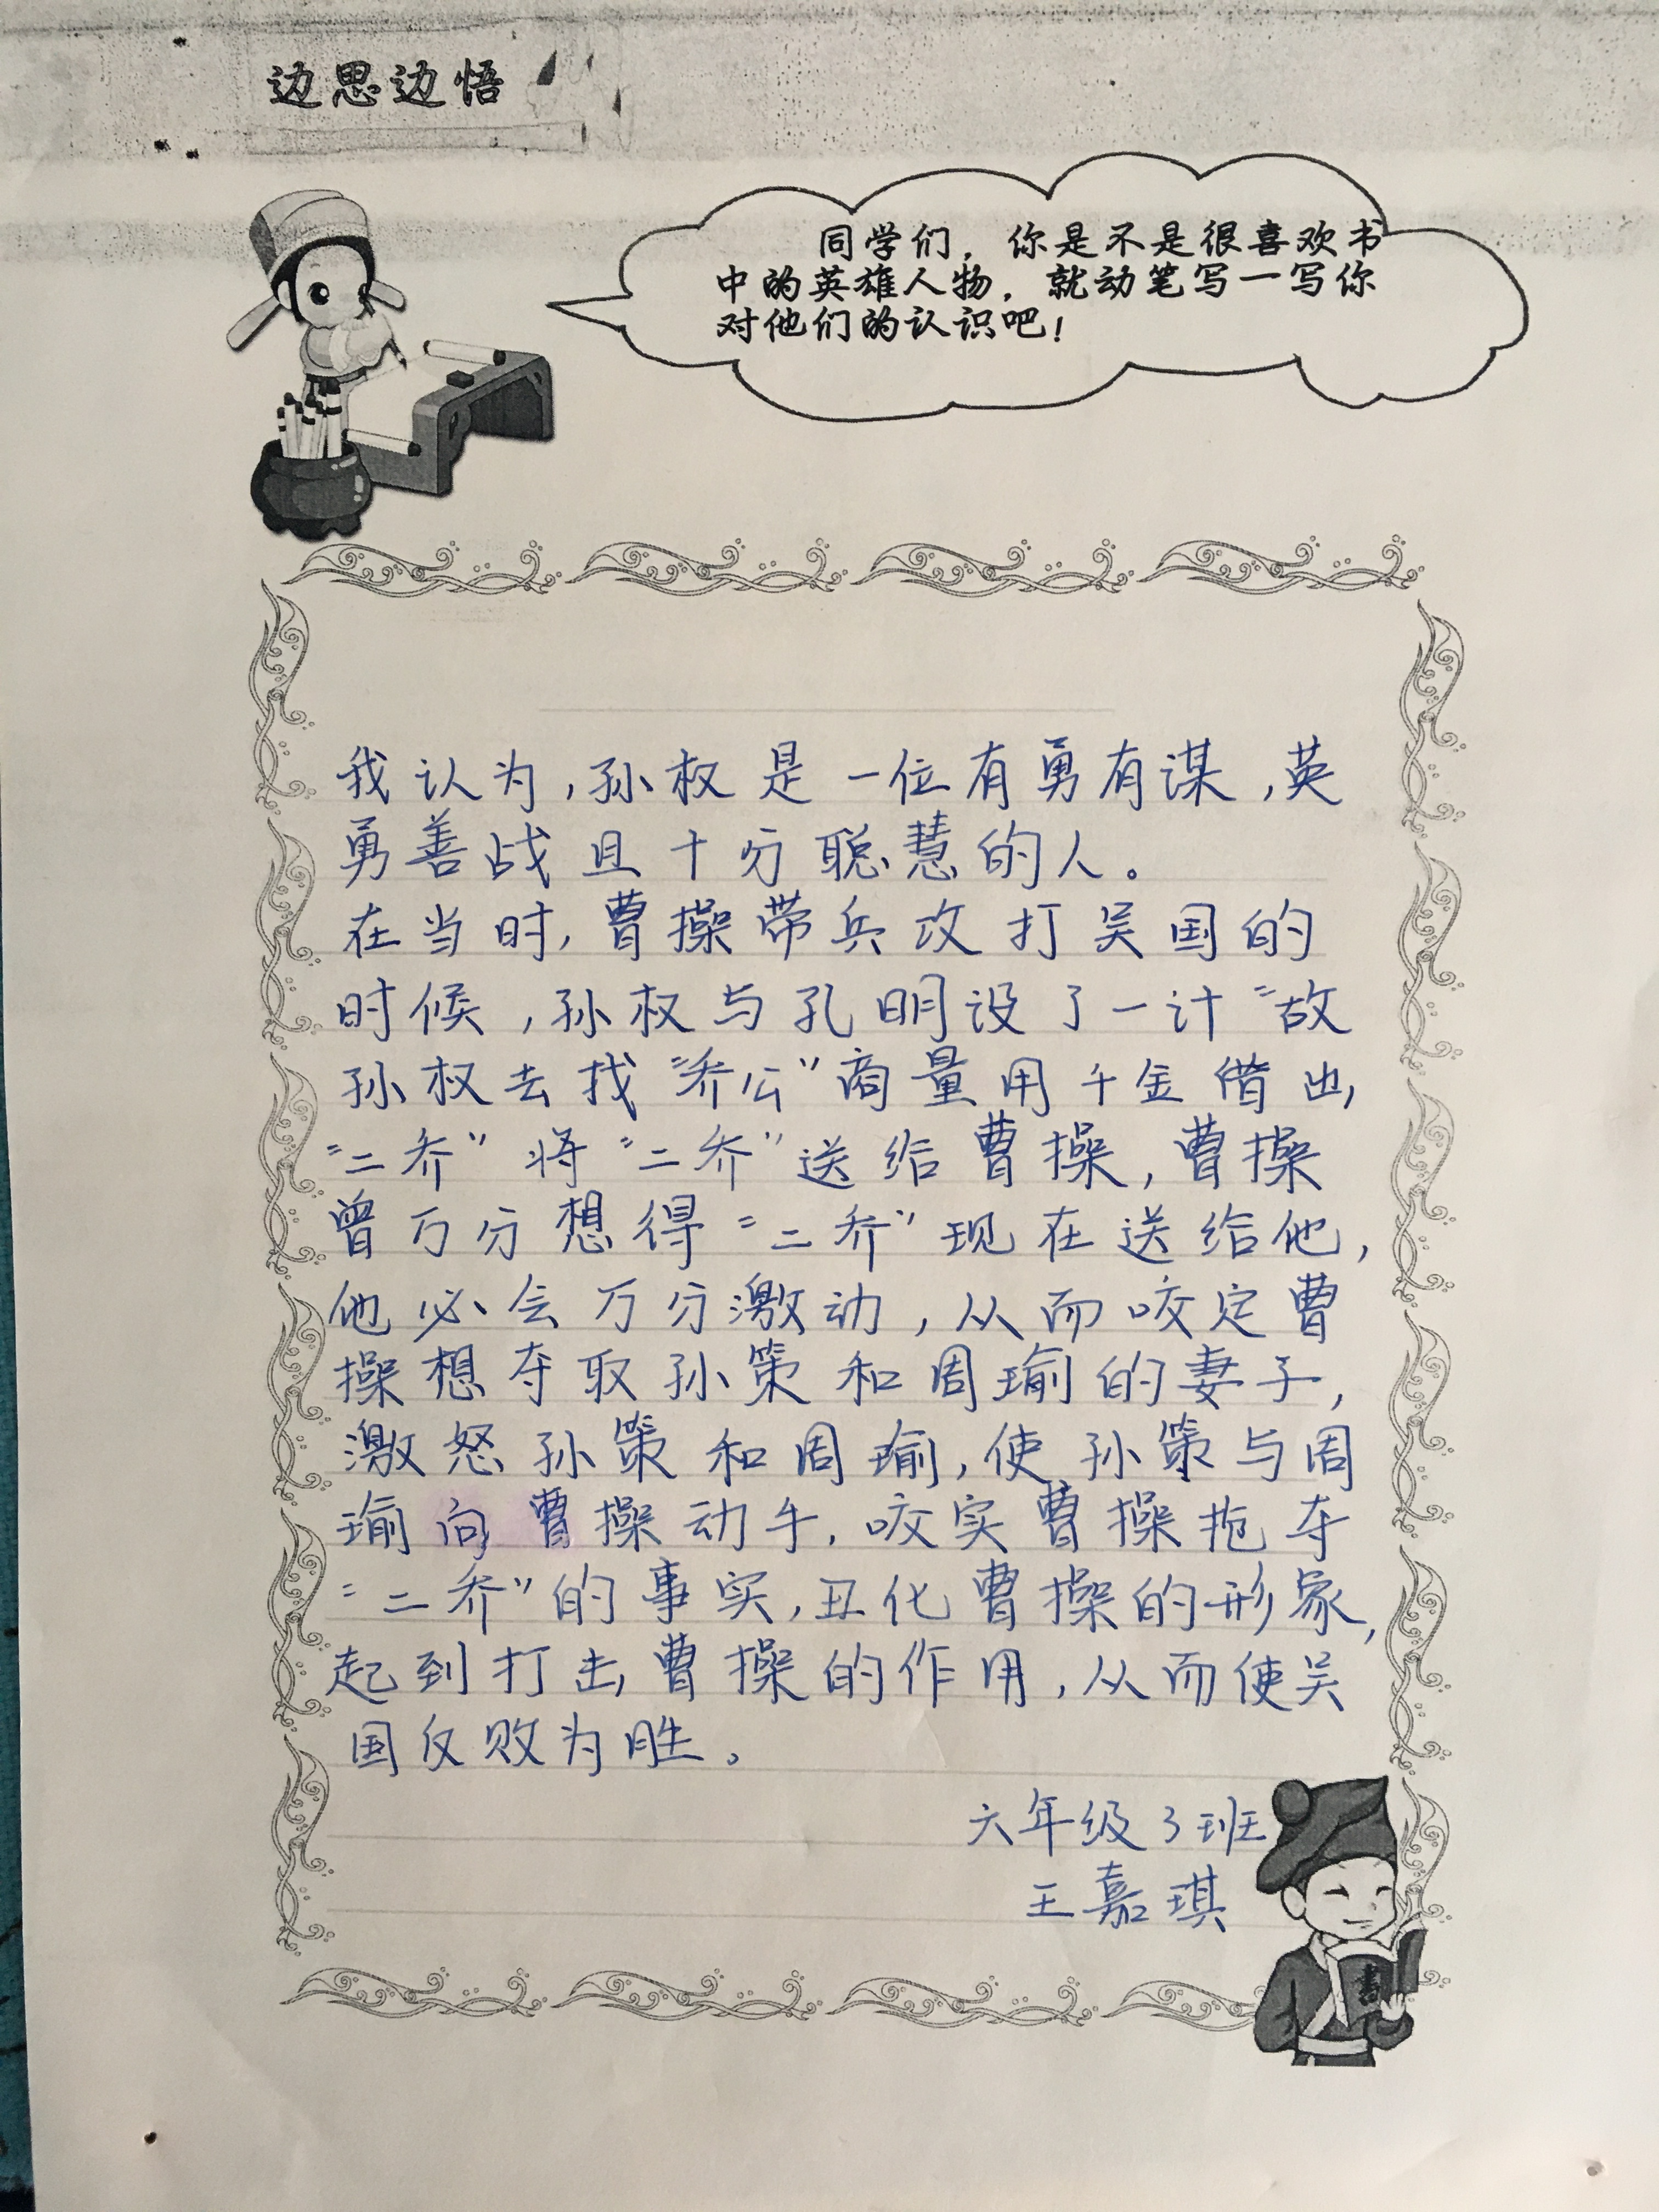 边思边悟
同学们，你是不是很喜欢书
中的英雄人物，就动笔写一写你
对他们的认识吧！
我认为，孙权是一位有勇有谋，英
勇善战且十分聪慧的人。
在当时，曹操带兵攻打吴国的
时候，孙权与孔明设了一计“故
孙权去找“乔公”商量用千金借出
“二乔”将“二乔”送给曹操，曹操
曾万分想得“二乔”现在送给他，
他必会万分激动，从而咬定曹
操想夺取孙策和周瑜的妻子，
激怒孙策和周瑜，使孙策与周
瑜向曹操动手，咬实曹操抢夺
“二乔”的事实，丑化曹操的形象，
起到打击曹操的作用，从而使吴
国反败为胜。
六年级3班
王嘉琪
書